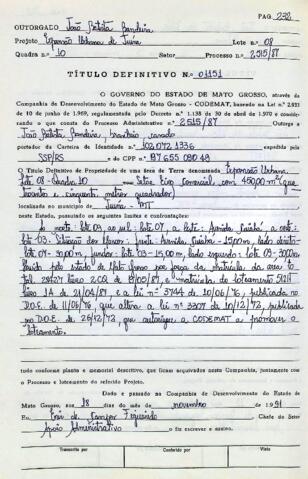 PAG. 232
OUTORGADO João Batista Bandeira
Projeto Expansão Urbana de Juína Lote n.º 08
Quadra n.º 10 Setor Processo n.º 2515/87
TÍTULO DEFINITIVO N.º 01151
O GOVERNO DO ESTADO DE MATO GROSSO, através da
Companhia de Desenvolvimento do Estado de Mato Grosso - CODEMAT, baseado na Lei n.º 2.821
10 de junho de 1968, regulamentada pelo Decreto n.º 1.138 de 30 de abril de 1970 e considerando
o que consta do Processo Administrativo n.º 2515/87 Outorga a
João Batista Bandeira, brasileiro, casado
portador da Carteira de Identidade n.º 102.072.1336 expedida
SSP/RS e do CPF n.º
O Título Definitivo de Propriedade de uma área de Terra denominada Expansão Urbana
Lote 08 - Quadra 10 Comercial, com 450,00 m² (quatrocentos
e cinquenta metros quadrados)
localizada no município de Juína - MT
neste Estado, possuindo os seguintes limites e confrontações:
Ao norte: lote 09, ao sul: lote 07, a leste: Avenida Cuiabá, a oeste:
lote 03. frente: Avenida Cuiabá - 15,00m, lado direito:
lote 07 - 30,00m, fundos: lote 03 - 15,00m, lado esquerdo: lote 09 - 30,00m
pelo Estado de Mato Grosso por força da matrícula da área
e matrícula do loteamento
de 21/04/87, e a lei nº 3744 de 10/06/76, publicada no
D.O.E. de 11/06/76, que altera a lei nº 3307 de 10/12/72, publicada
no D.O.E. de 26/12/72, que autoriza a CODEMAT a promover o
loteamento.
tudo conforme planta e memorial descritivo, que ficam arquivados nesta Companhia, juntamente com
o Processo e loteamento do referido Projeto.
Dado e passado na Companhia de Desenvolvimento do Estado de
Mato Grosso, aos 18 dias do mês de novembro de 1991
Eu, de Campos Figueiredo Chefe do Setor
Apoio Administrativo o fiz escrever e assino.
Transcrito por Conferido por Visto